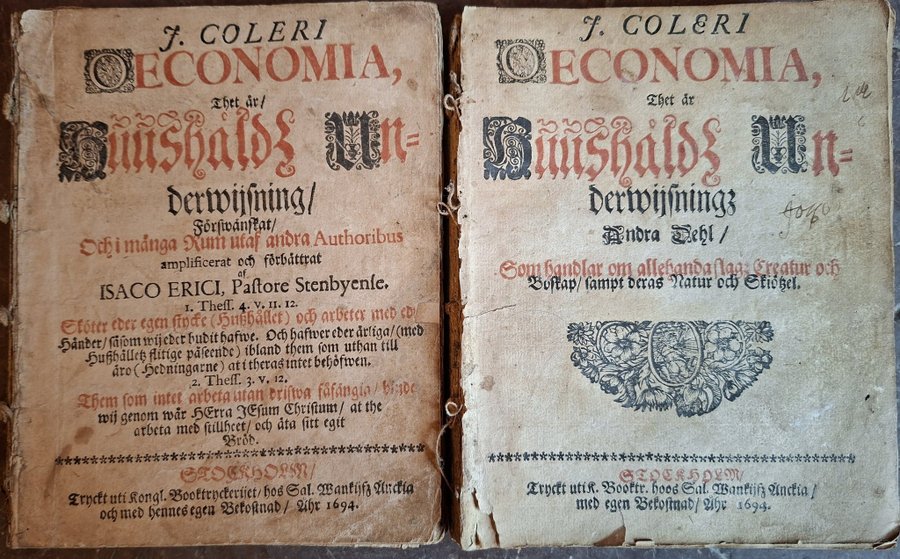 J. COLERI
OECONOMIA,
Thet är/
Huushåldz Un-
derwijsning/
Förswänskat/
Och i många Rum utaf andra Authoribus
amplificerat och förbättrat
af
ISACO ERICI, Pastore Stenbyense.
1. Thess. 4. v. 11. 12.
Sköter eder egen stycke (Hußhållet) och arbeter med edra
Händer/ såsom wij eder budit hafwe. Och hafwer eder ärliga/ (med
Hußhålletz flitige påseende) ibland them som uthan till
äro (Hedningarne) at i theras intet behöfwen.
2. Thess. 3. v. 12.
Them som intet arbeta utan driswa fåfängia/ biude
wij genom wår HErra JEsum Christum/ at the
arbeta med stillheet/ och äta sitt egit
Bröd.
STOCKHOLM/
Tryckt uti Kongl. Booktryckerijet/ hos Sal. Wankijfz Änckia
och med hennes egen Bekostnad/ Åhr 1694.
J. COLERI
OECONOMIA,
Thet är
Huushåldz Un-
derwijsningz
Andra Dehl/
Som handlar om allehanda slagz Creatur och
Boskap/ sampt deras Natur och Skiötzel.
STOCKHOLM/
Tryckt uti K. Booktr. hoos Sal. Wankijfz Änckia/
med egen Bekostnad/ Åhr 1694.